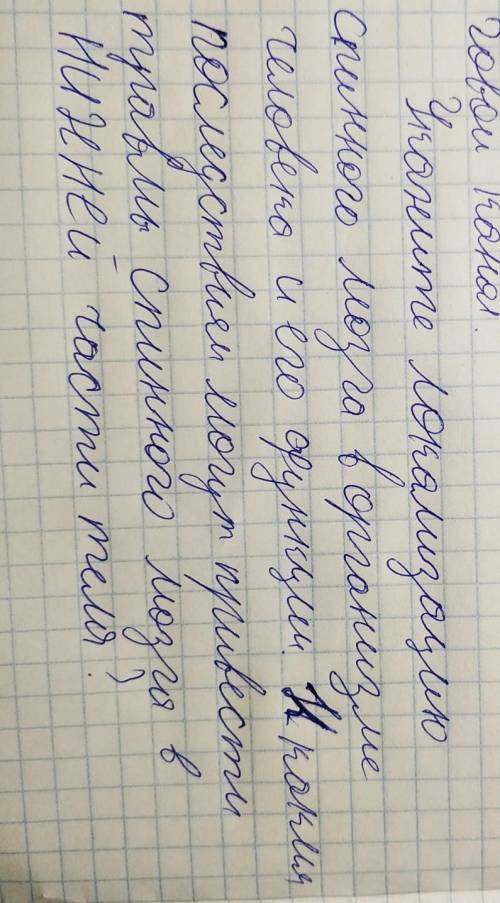 говой канал.
Укажите локализацию
спинного мозга в организме
человека и его функции. К каким
последствиям могут привести
травмы спинного мозга в
нижней части тела?